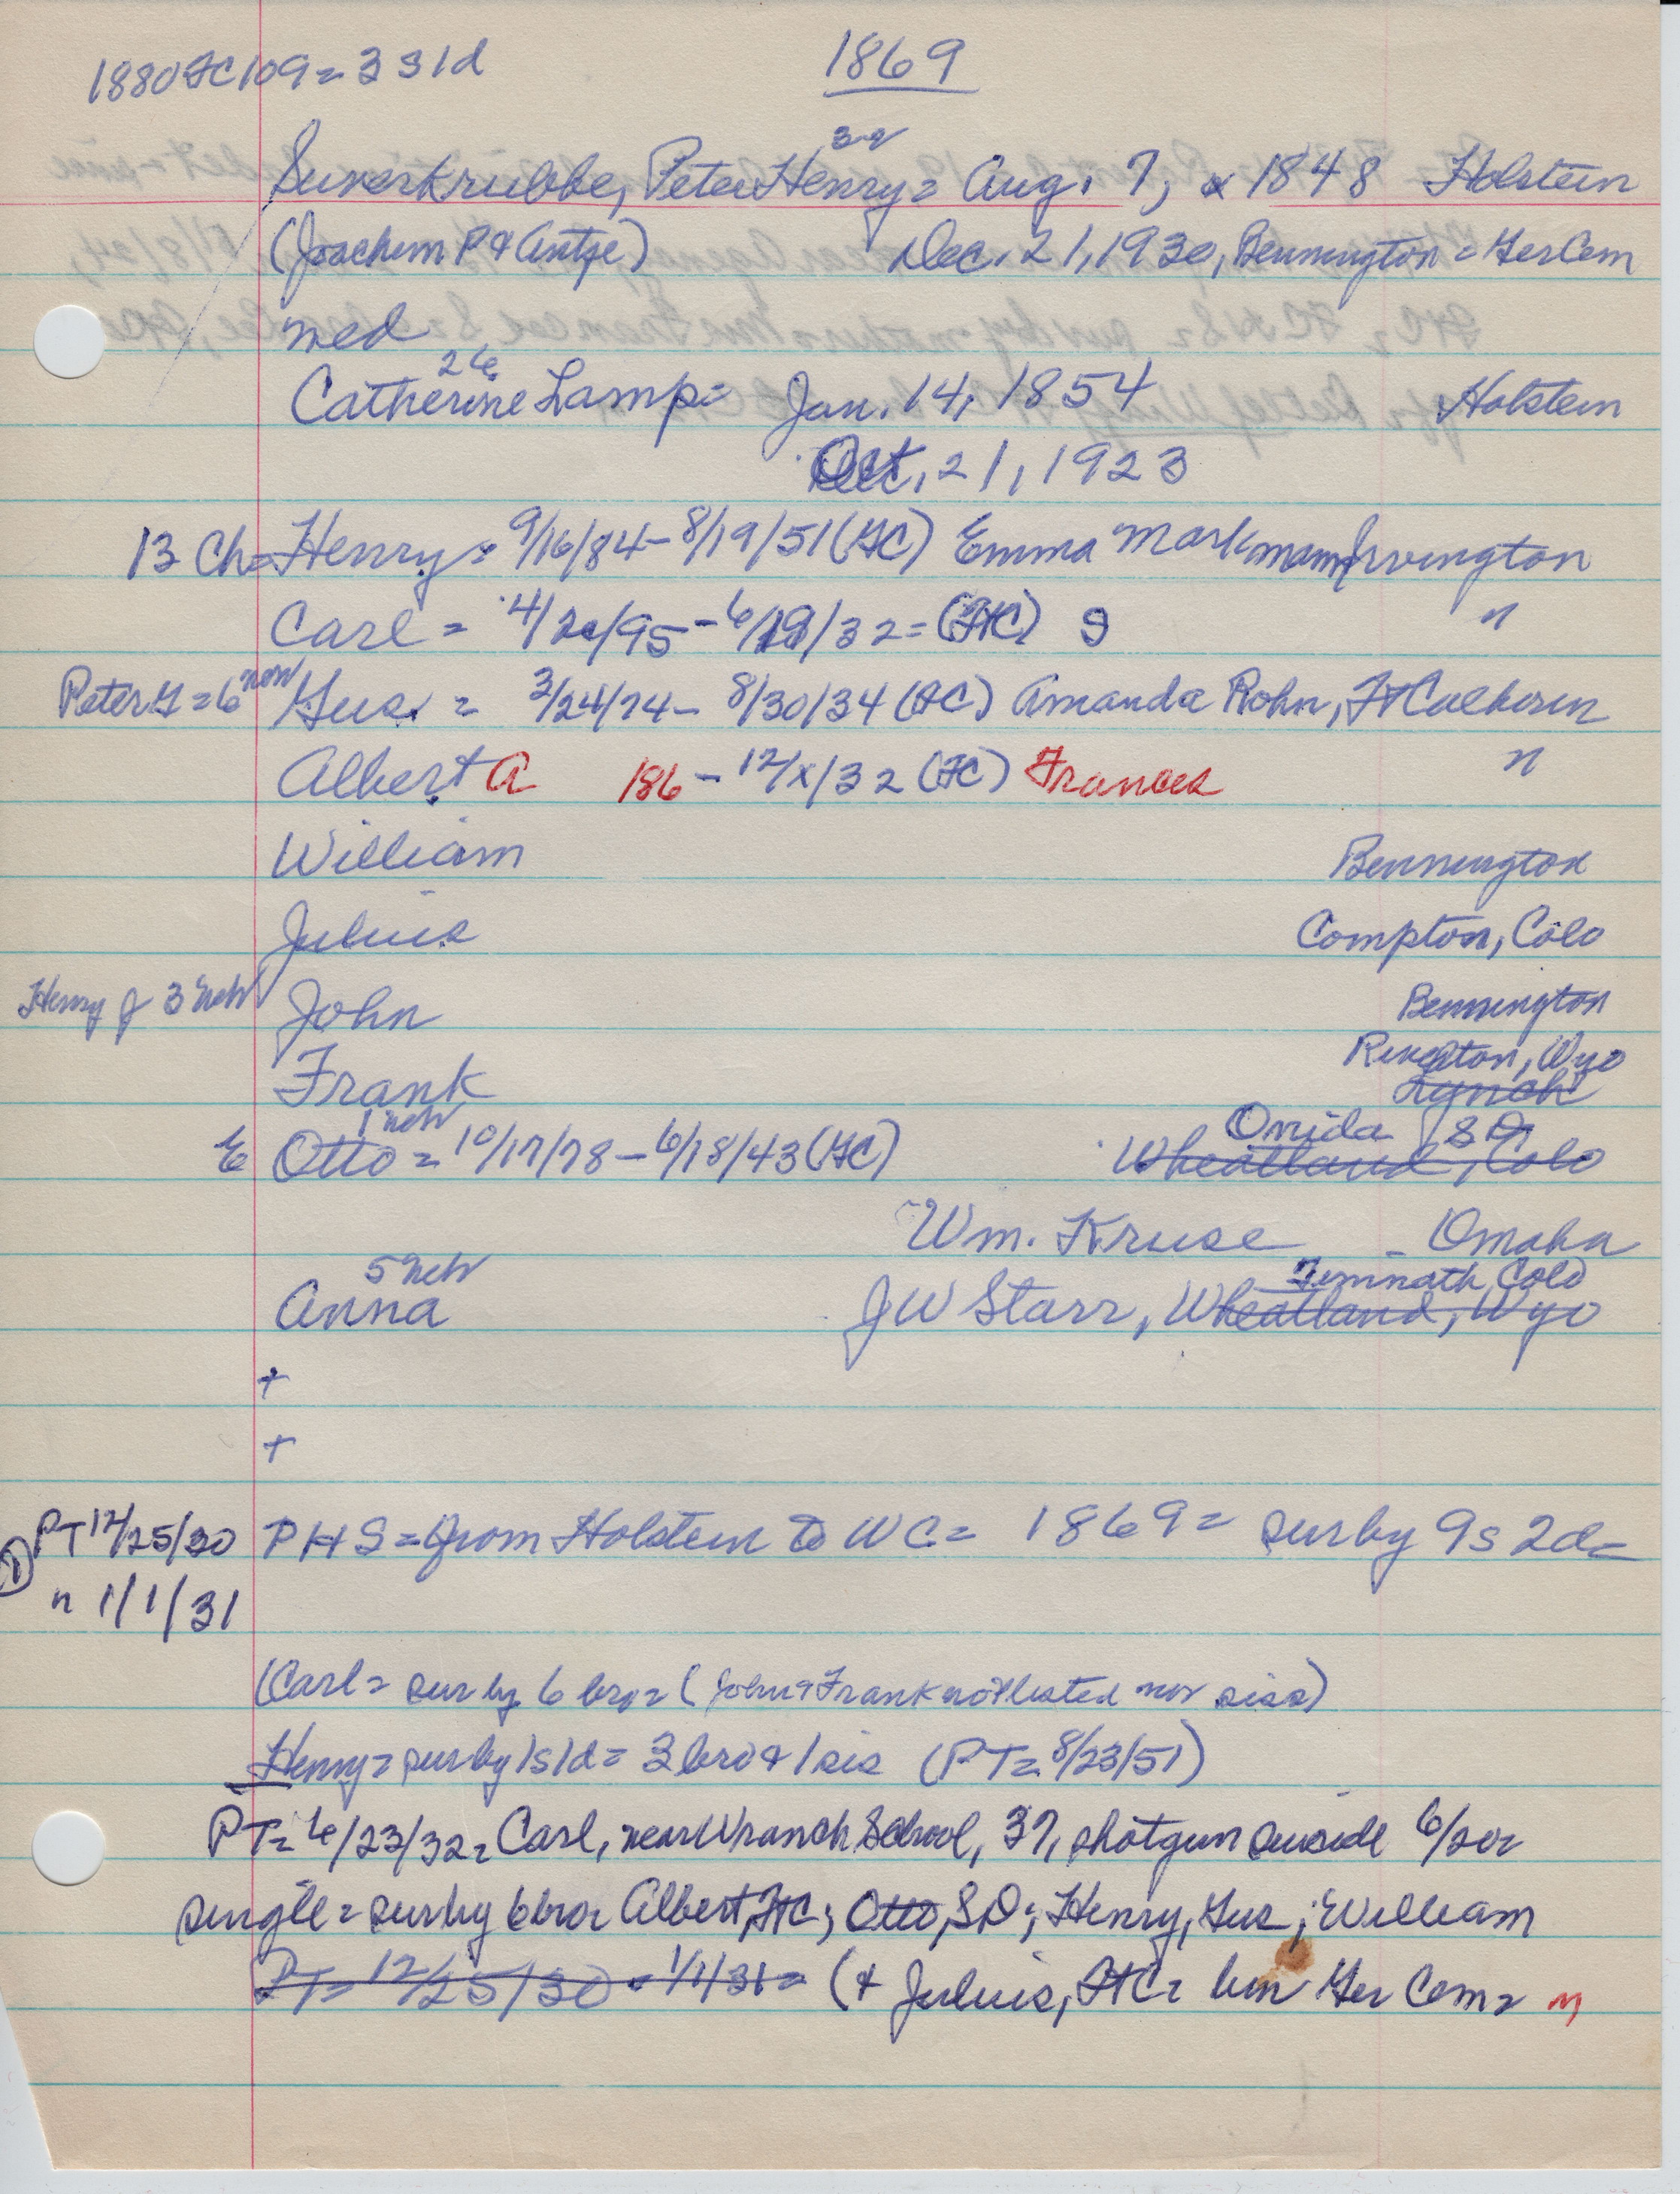 1880 FC 109 = 3 s 1 d
1869
32
Suverkrubbe, Peter Henry = Aug. 7, 1848 Holstein
(Joachem P & Antje) Dec. 21, 1930, Bennington = Ger Cem
med
26
Catherine Lamp = Jan. 14, 1854 Holstein
Oct. 21, 1923
13 Ch = Henry = 9/16/84 - 8/19/51 (FC) Emma Markmann Irvington
Carl = 4/20/95 - 6/19/32 = (FtC) S "
Peter G = 6 now Gus. = 3/24/74 - 8/30/34 (FC) Amanda Rohn, Ft Calhoun
Albert A 186 - 12/x/32 (FC) Frances "
William Bennington
Julius Compton, Colo
Henry J 3 neb John Bennington
Riverton, Wyo
Frank Lynch
1 neb Onida SD
E Otto = 10/17/78 - 6/18/43 (FC) Wheatland, Colo
Wm. Kruse - Omaha
5 neb Timnath, Colo
Anna JW Starr, Wheatland, Wyo
+
+
PT 12/25/30 PHS = from Holstein to WC = 1869 = sur by 9s 2d =
" 1/1/31
(Carl = sur by 6 bro = (John & Frank not listed nor siss)
Henry = sur by 1s 1d = 3 bro & 1 sis (PT = 8/23/51)
PT = 6/23/32 = Carl, near Wranch School, 37, shotgun suicide 6/20 =
single = sur by 6 bro = Albert, FtC; Otto, SD; Henry, Gus, ; William
PT = 12/25/30 = 1/1/31 = (+ Julius, FtC = bur Ger Cem = n